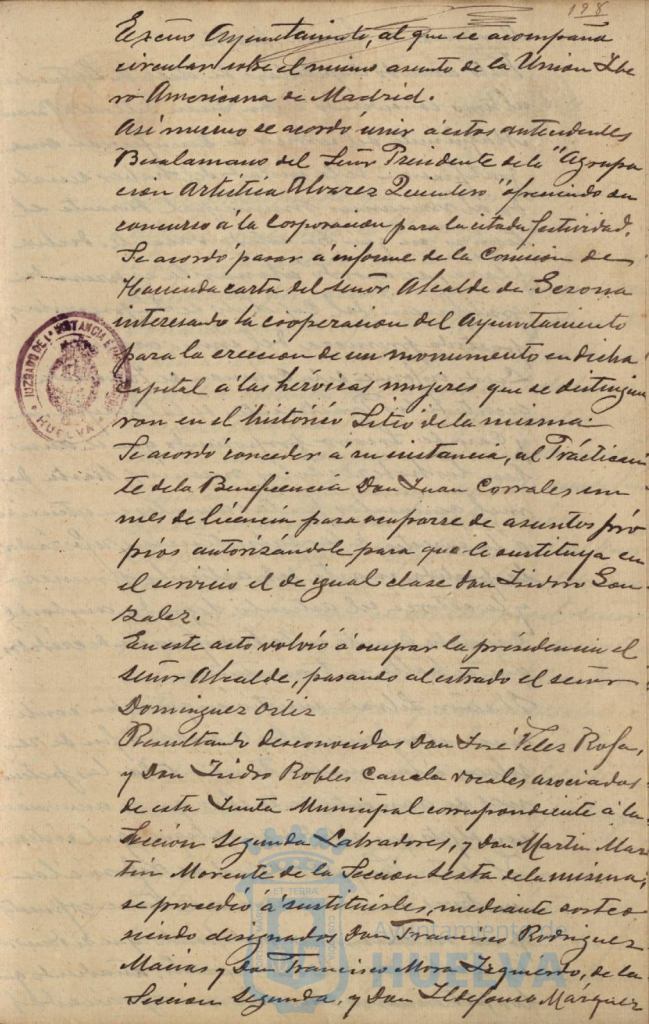 198
Excmo Ayuntamiento, al que se acompaña
circular sobre el mismo asunto de la Union Ibe
ro Americana de Madrid.
Asi mismo se acordó unir á estos antecedentes
Besalamano del Señor Presidente de la "Agrupa
cion Artistica Alvarez Quintero" ofreciendo su
concurso á la Corporacion para la citada festividad.
Se acordó pasar á informe de la Comision de
Hacienda carta del señor Alcalde de Gerona
interesando la cooperacion del Ayuntamiento
para la ereccion de un monumento en dicha
capital á las heróicas mujeres que se distinguie
ron en el histórico Sitio de la misma.
Se acordó conceder á su instancia, al Practican
te de la Beneficencia Don Juan Corrales un
mes de licencia para ocuparse de asuntos pro
pios autorizándole para que le sustituya en
el servicio el de igual clase Don Isidro Gon
zalez.
En este acto volvió á ocupar la presidencia el
Señor Alcalde, pasando al estrado el señor
Dominguez Ortiz
Resultando desconocidos Don José Velez Rofa,
y Don Isidro Robles Canela vocales asociados
de esta Junta Municipal correspondiente á la
Seccion Segunda Labradores, y Don Martin Mar
tin Morente de la Seccion Sesta de la misma,
se procedió á sustituirles, mediante sorteo
siendo designados Don Francisco Rodriguez
Macias y Don Francisco Mora Izquierdo, de la
Seccion Segunda, y Don Ildefonso Márquez
JUZGADO DE 1ª INSTANCIA É
HUELVA
Ayuntamiento de
HUELVA